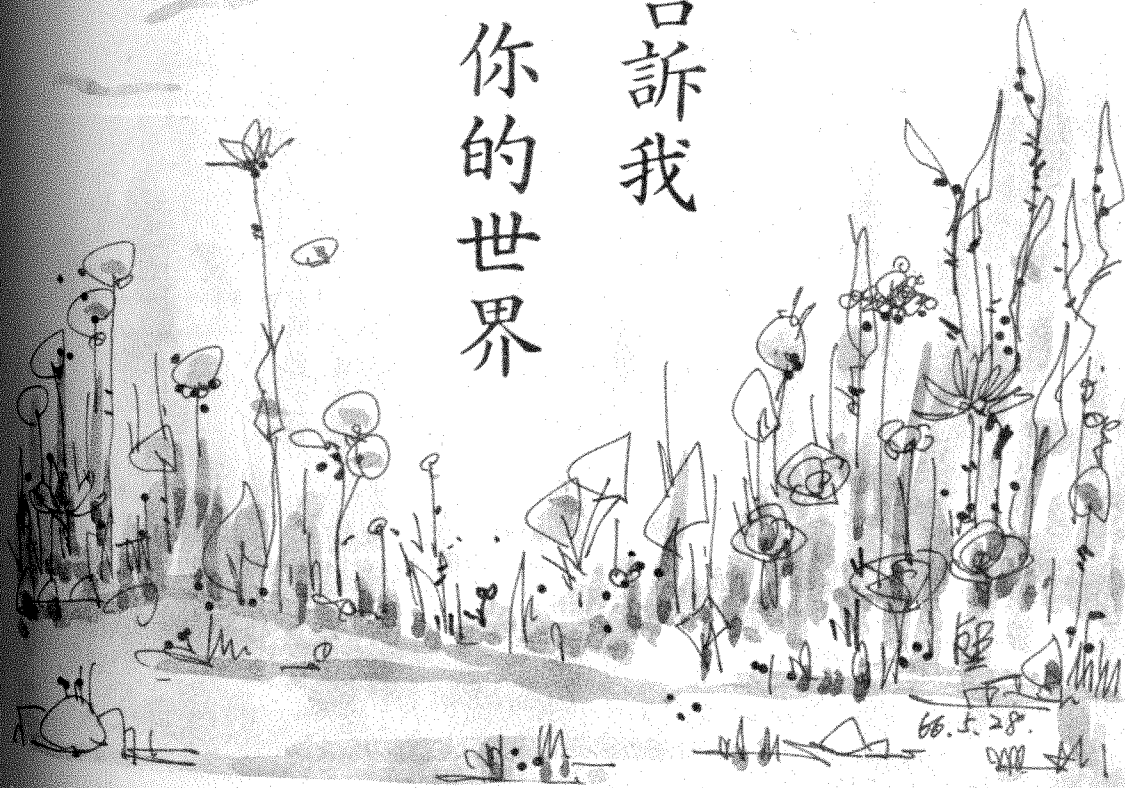 告訴我
你的世界
66.5.28.